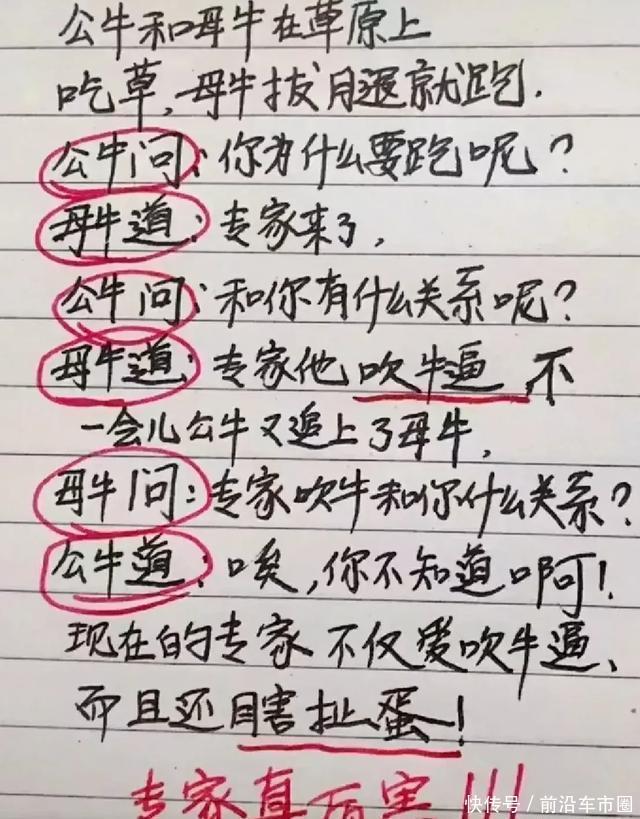 公牛和母牛在草原上
吃草,母牛拔腿就跑.
公牛问:你为什么要跑呢?
母牛道:专家来了,
公牛问:和你有什么关系呢?
母牛道:专家他吹牛逼,不
一会儿公牛又追上了母牛,
母牛问:专家吹牛和你什么关系?
公牛道:唉,你不知道啊!
现在的专家不仅爱吹牛逼、
而且还瞎扯蛋!
专家真厉害!!!
快传号/前沿车市圈